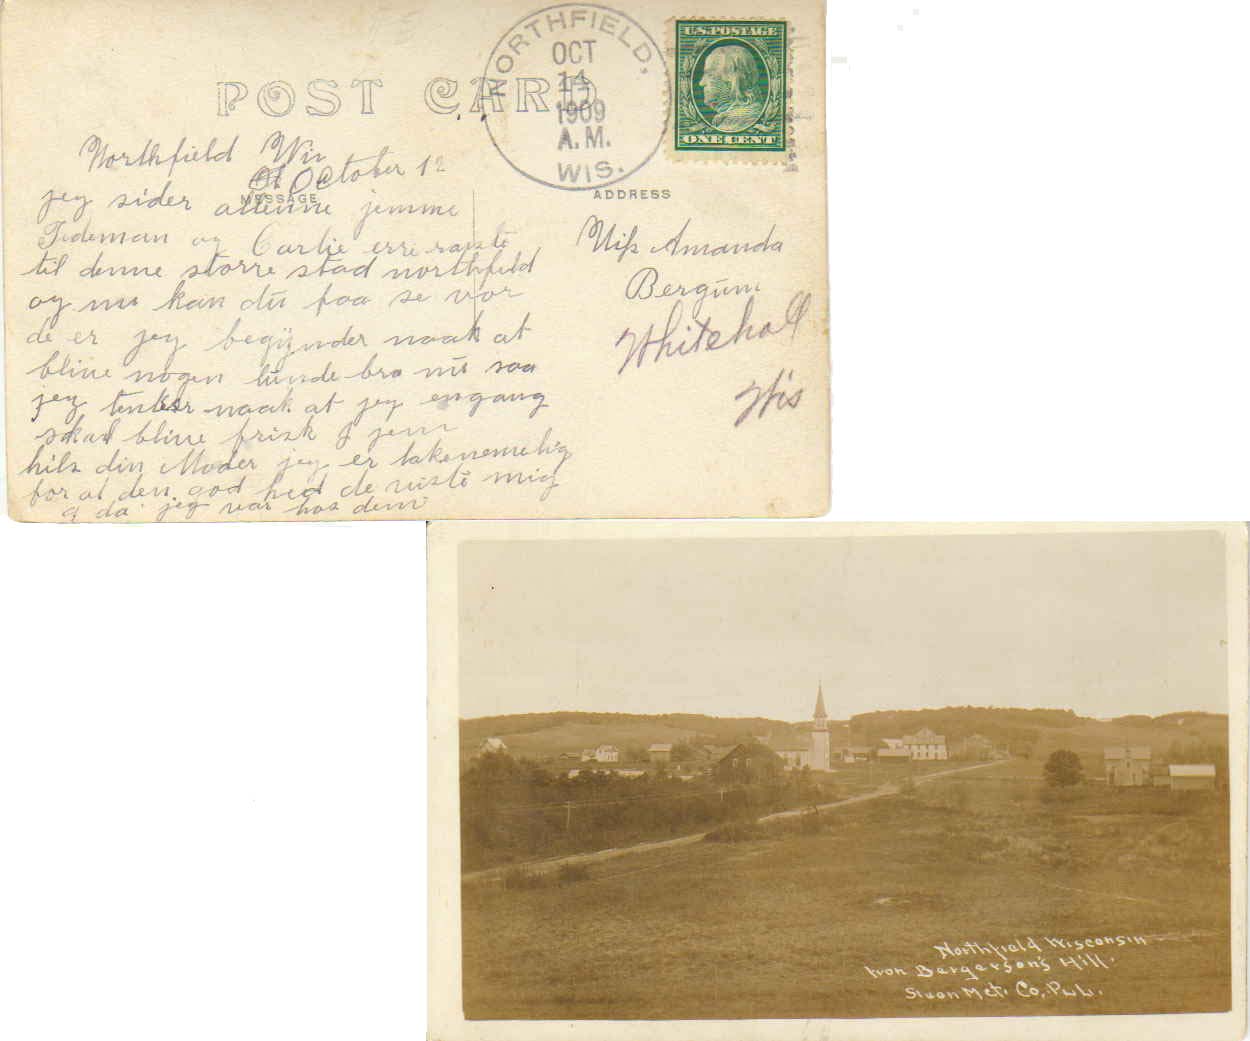 POST CARD
NORTHFIELD,
OCT
14
1909
A.M.
WIS.
U.S. POSTAGE
ONE CENT
Northfield Wis
October 12
MESSAGE
ADDRESS
jeg sider allenne jemme
Tideman og Carlie erre raiste
til denne storre stad northfield
og nu kan du faa se vor
de er jeg begynder naak at
blive nogen lunde bra nu saa
jeg tenker naak at jeg engang
skal blive frisk I jenn
hils din Moder jeg er takenemelig
for al den god hed de viiste mig
da jeg var hos dem
Miss Amanda
Bergum
Whitehall
Wis
Northfield Wisconsin
from Bergerson's Hill.
Mct. Co, Pub.